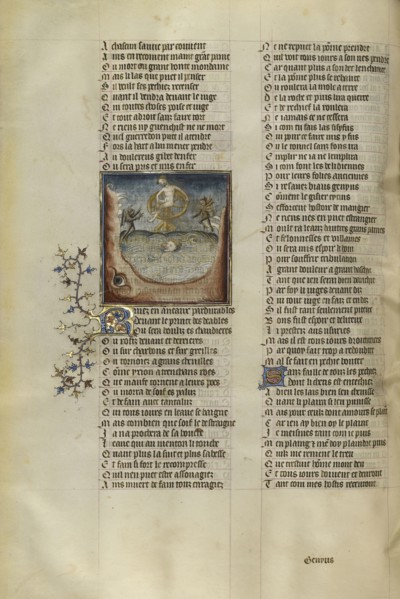 A chascun sauve par couvent
A ins en retiennent maint grant paine
O u mort ou grant honte mondaine
M ais li las que puet il penser
S il veult ses pechiez recenser
Q uant il vendra devant le iuge
Q ui toutes choses poise et iuge
E t tout a droit sans faire tort
N e riens ny guenchist ne ne mort
Q uel guerredon puet il atendre
F ors la hart a lui mener pendre
A u douloureus gibet denfer
O u sera pris et mis en fer
R ivez en aneaux pardurables
D evant le prince des deables
O u sera boulis en chaudieres
O u rostis devant et derrieres
O u sur charbons ou sur greilles
O u tornoiez a grans chevilles
C omme yxion a trenchans roes
Q ue maufe tornent a leurs poes
O u morra de soif es palus
E t de fain avec tantalus
Q ui tous iours en leaue se baigne
M ais combien que soif le destraigne
I l naprochera de sa bouche
L eaue qui au menton li touche
Q uant plus la suit et plus sabesse
E t fain si fort le recompresse
Q uil nen puet estre assouagiez
A ins muert de fain tous enragiez
N e ne repuet la pomme prendre
Q uil voit tous iours a son nes pendre
C ar quant plus a son bec lenchauce
E t la pomme plus se rehauce
O u roulera la mole a terre
D e la roche et puis lira querre
E t de rechief la roulera
N e iamais ne cessera
S i com tu fais las sisifus
Q ui pour ce faire mis y fus
O u le tonnel sans fons ira
E mplir ne ia ne lemplira
S i com font les belidiennes
P our leurs folies anciennes
S i resavez biaus genyus
C omment le gisier ticius
S efforcent ostoir de mangier
N e riens nes en puet estrangier
M oult ra leans dautres grans paines
E t felonnesses et vilaines
O u sera mis espoir li hom
P our souffrir tribulacion
A grant douleur a grant hachie
T ant que ien serai bien vanchie
P ar foy li iuges devant dis
Q ui tout iuge en fais et en dis
S il fust tant seulement piteus
B ons fust espoir et deliteus
L i prestiers aus usuriers
M ais il est tous iours droituriers
P ar quoy fait trop a redoubter
M al se fait en pechie bouter
S anz faille de touz les pechiez
D ont li chetis est entechiez
A dieu les lais bien sen chevisse
Q uant li plaira si len punisse
M ais pour ceulx dont amours se plaint
C ar ien ay bien oy le plaint
I e meismes tant com ie puis
M en plaing et men doy plaindre puis
Q uil me renient le treu
Q ue trestuit homme mont deu
E t touz iours doivent et devront
T ant com mes hostilz recevront
Genyus